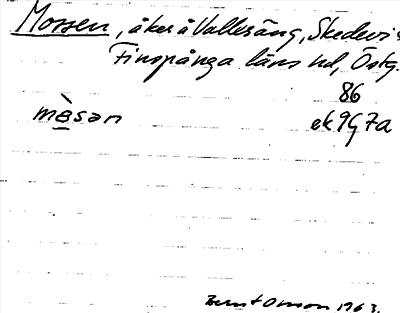 Mossen, åker å Vallersäng, Skedevi s
Finspånga läns hd, Östg.
86
mèsan ek 9G7a
Bernt Olsson 1963.